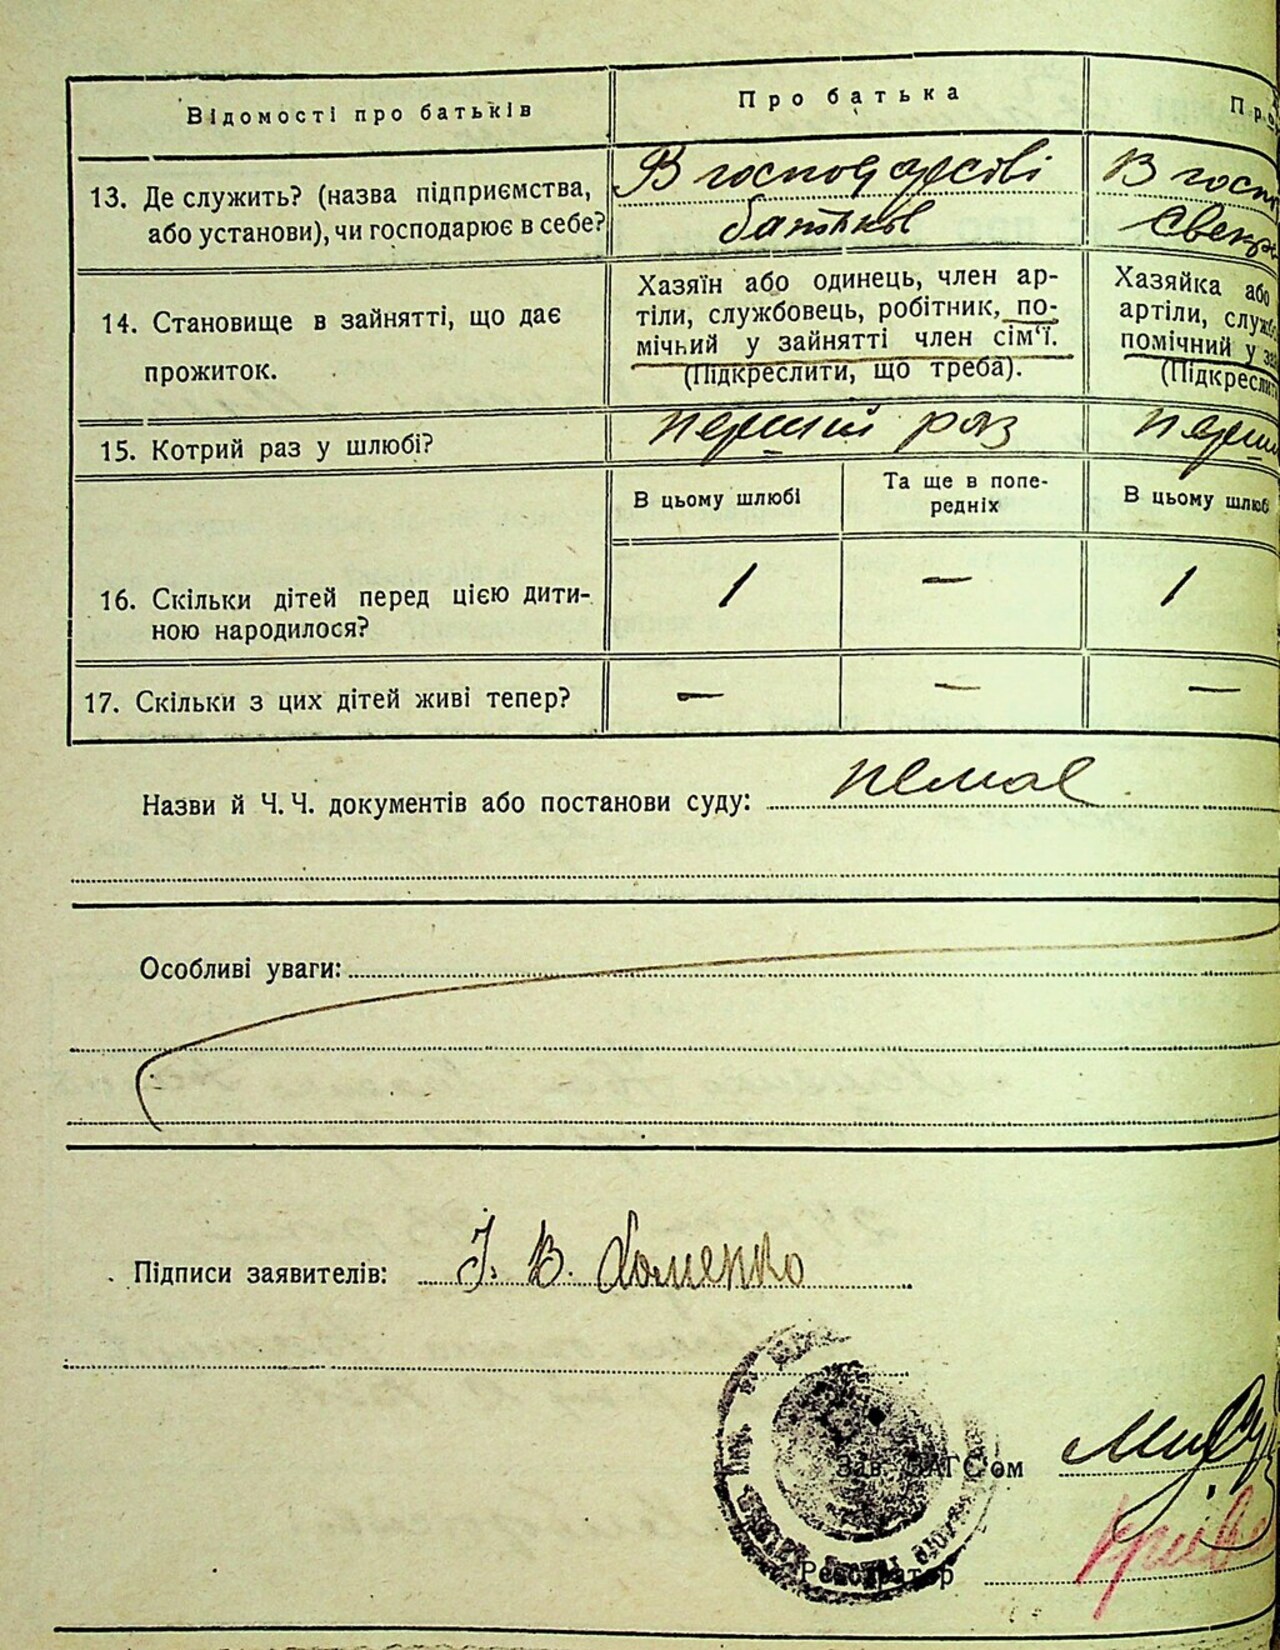 Відомості про батьків
Про батька
13. Де служить? (назва підприємства,
або установи), чи господарює в себе?
В господарстві
батьків
В госп
Свекр
14. Становище в зайнятті, що дає
прожиток.
Хазяїн або одинець, член ар-
тіли, службовець, робітник, по-
мічний у зайнятті член сім'ї.
(Підкреслити, що треба).
Хазяйка або
артіли, служб
помічний у за
(Підкреслит
15. Котрий раз у шлюбі?
перший раз
перш
16. Скільки дітей перед цією дити-
ною народилося?
В цьому шлюбі
Та ще в попе-
редніх
В цьому шлюб
1
—
1
17. Скільки з цих дітей живі тепер?
—
—
—
Назви й Ч. Ч. документів або постанови суду: немає
Особливі уваги:
Підписи заявителів: І. В. Хоменко
Зав. ЗАГС'ом
Реєстратор